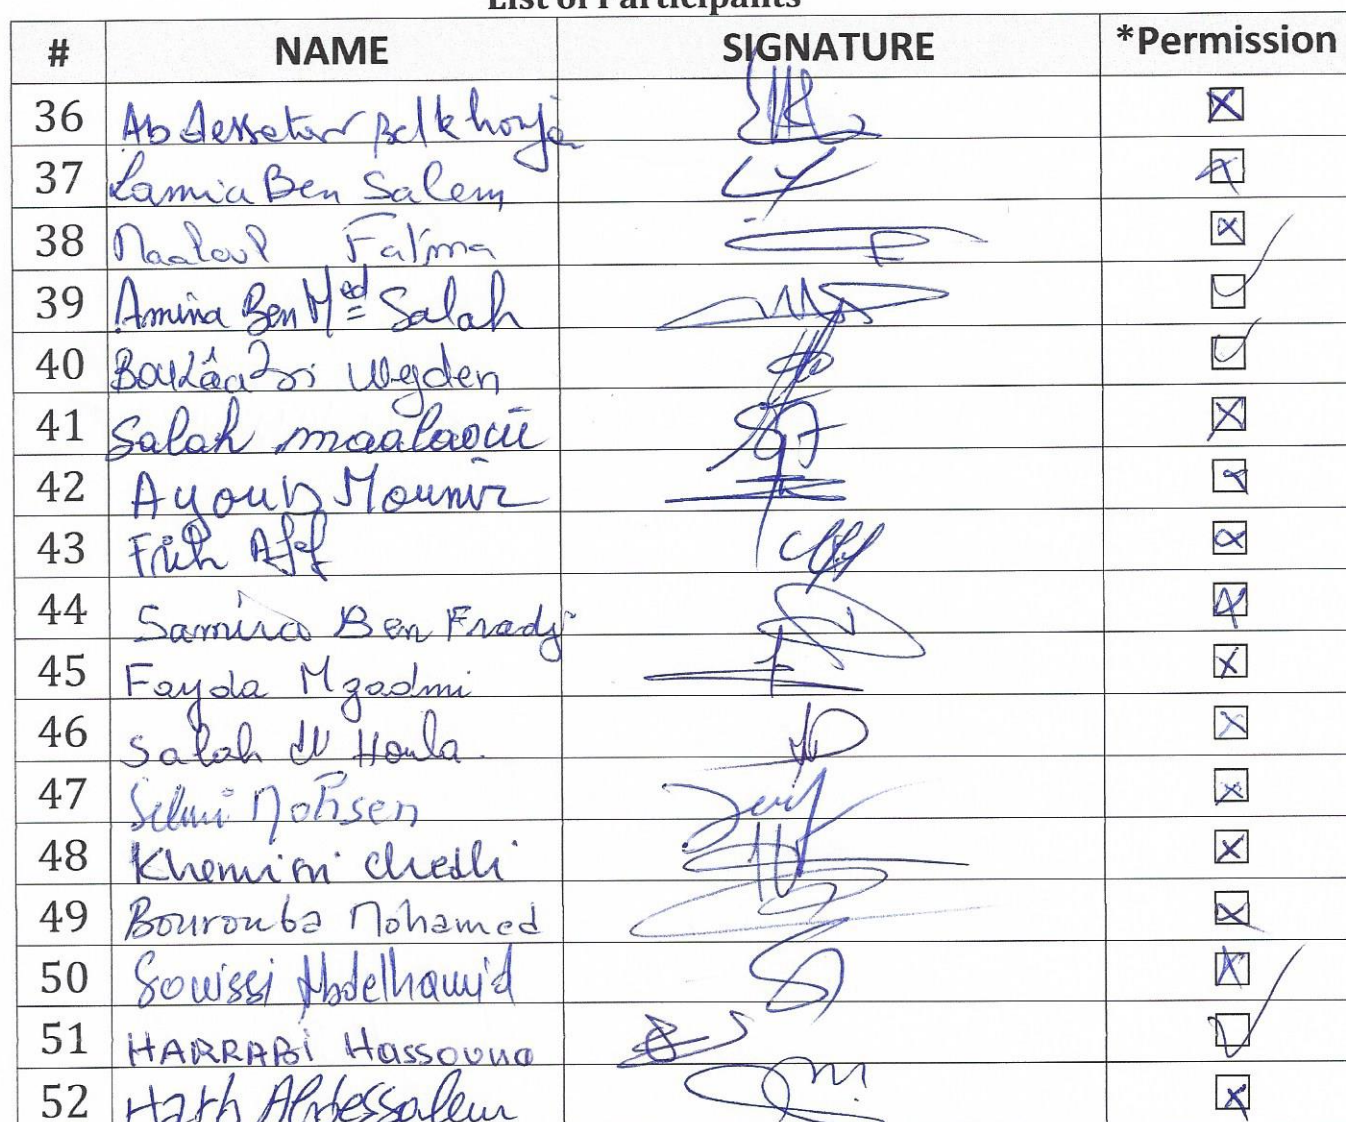 List of Participants
# NAME SIGNATURE *Permission
36 Abdessetar Belkhouja
37 Lamia Ben Salem
38 Maaloul Fatma
39 Amina Ben Med Salah
40 Wejden
41 Salah maalaoui
42 Ayoub Mounir
43 Frih Afef
44 Samira Ben Fradj
45 Fayda Mzadmi
46 Salah Houla
47 Selmi Mohsen
48 Khemiri chedli
49 Bourouba Mohamed
50 Souissi Abdelhamid
51 HARRABI Hassouna
52 Abdessalem